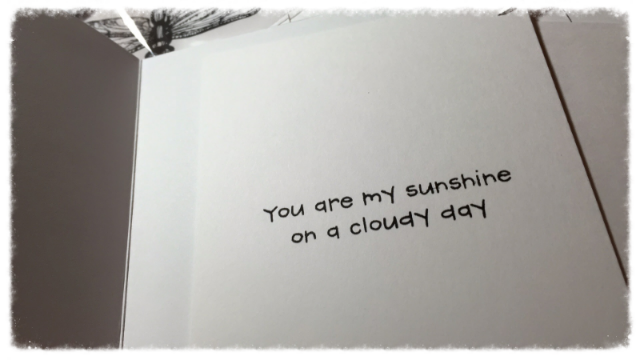 You are my sunshine
on a cloudy day